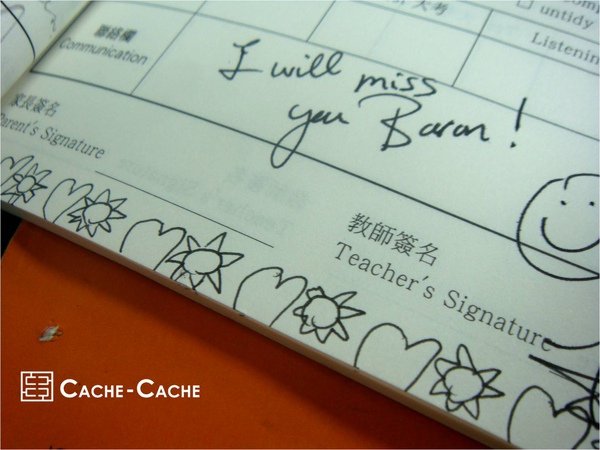 大考
untidy
聯絡欄
Communication
Listenin
I will miss
you Baron!
家長簽名
Parent's Signature
教師簽名
Teacher's Signature
CACHE-CACHE